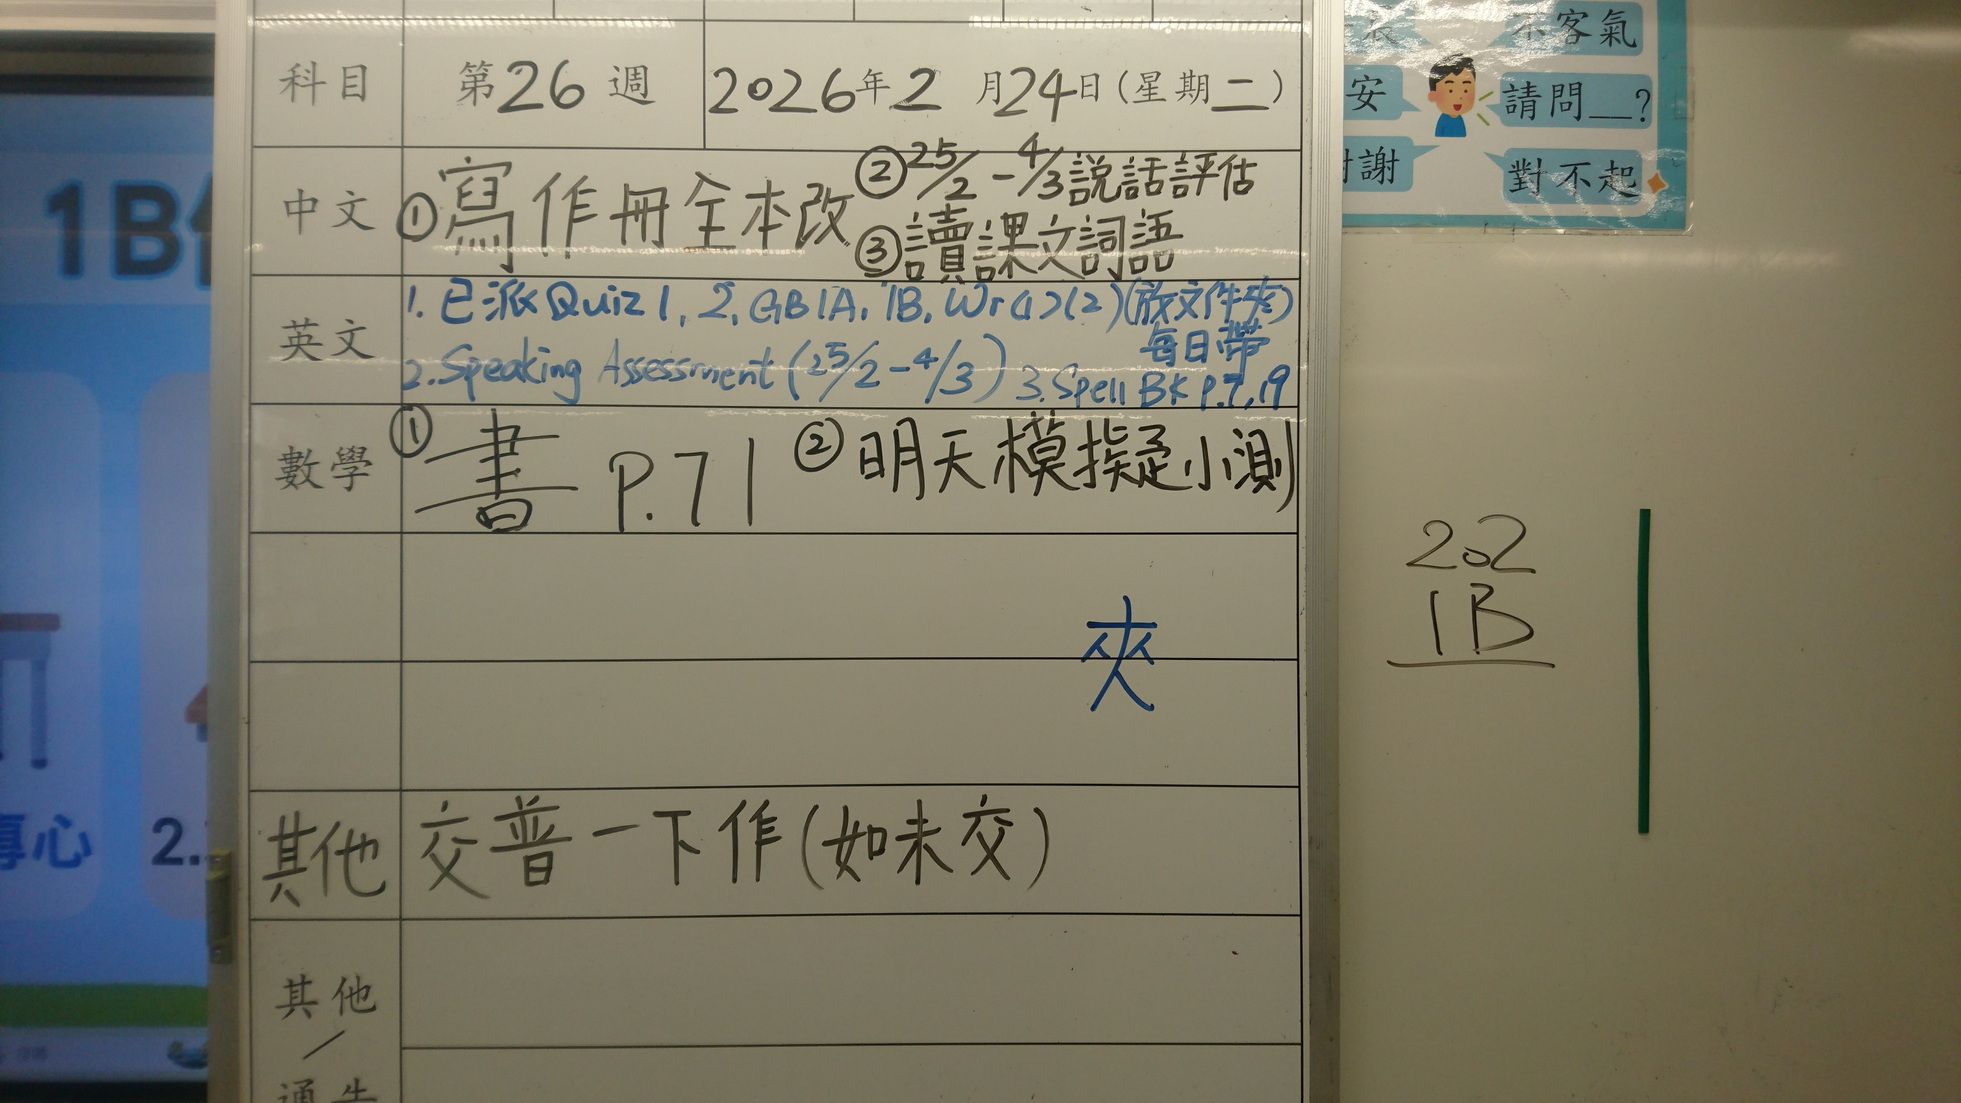 科目 第26週 2026年2月24日(星期二)
中文 ①寫作冊全本改 ②25/2-4/3說話評估
③讀課文詞語
英文 1. 已派Quiz 1, 2, GB 1A, 1B, Wr(1)(2)(放文件夾)
每日帶
2. Speaking Assessment (25/2-4/3) 3. Spell BK P.7, 19
數學 ①書 P.71 ②明天模擬小測
夾
其他 交普一下作(如未交)
其他
／
通告
1B
專心 2.
不客氣
安 請問__?
謝 對不起
202
1B